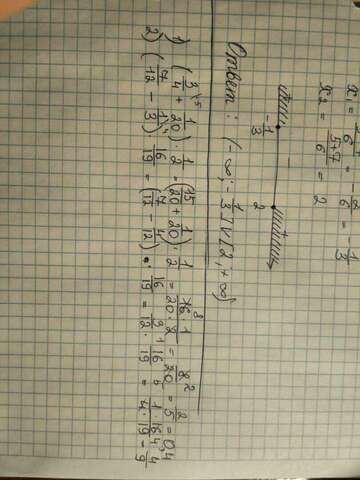 x₁ = 5-7/6 = -2/6 = -1/3
x₂ = 5+7/6 = 2
-1/3 2
Ответ: (-∞; -1/3] V [2, +∞)
1) (3/4 + 1/20) · 1/2 = (15/20 + 1/20) · 1/2 = 16·1/20·2 = 8/20 = 2/5 = 0,4
2) (7/12 - 1/3) · 16/19 = (7/12 - 4/12) · 16/19 = 3/12 · 16/19 = 1·16/4·19 = 4/19